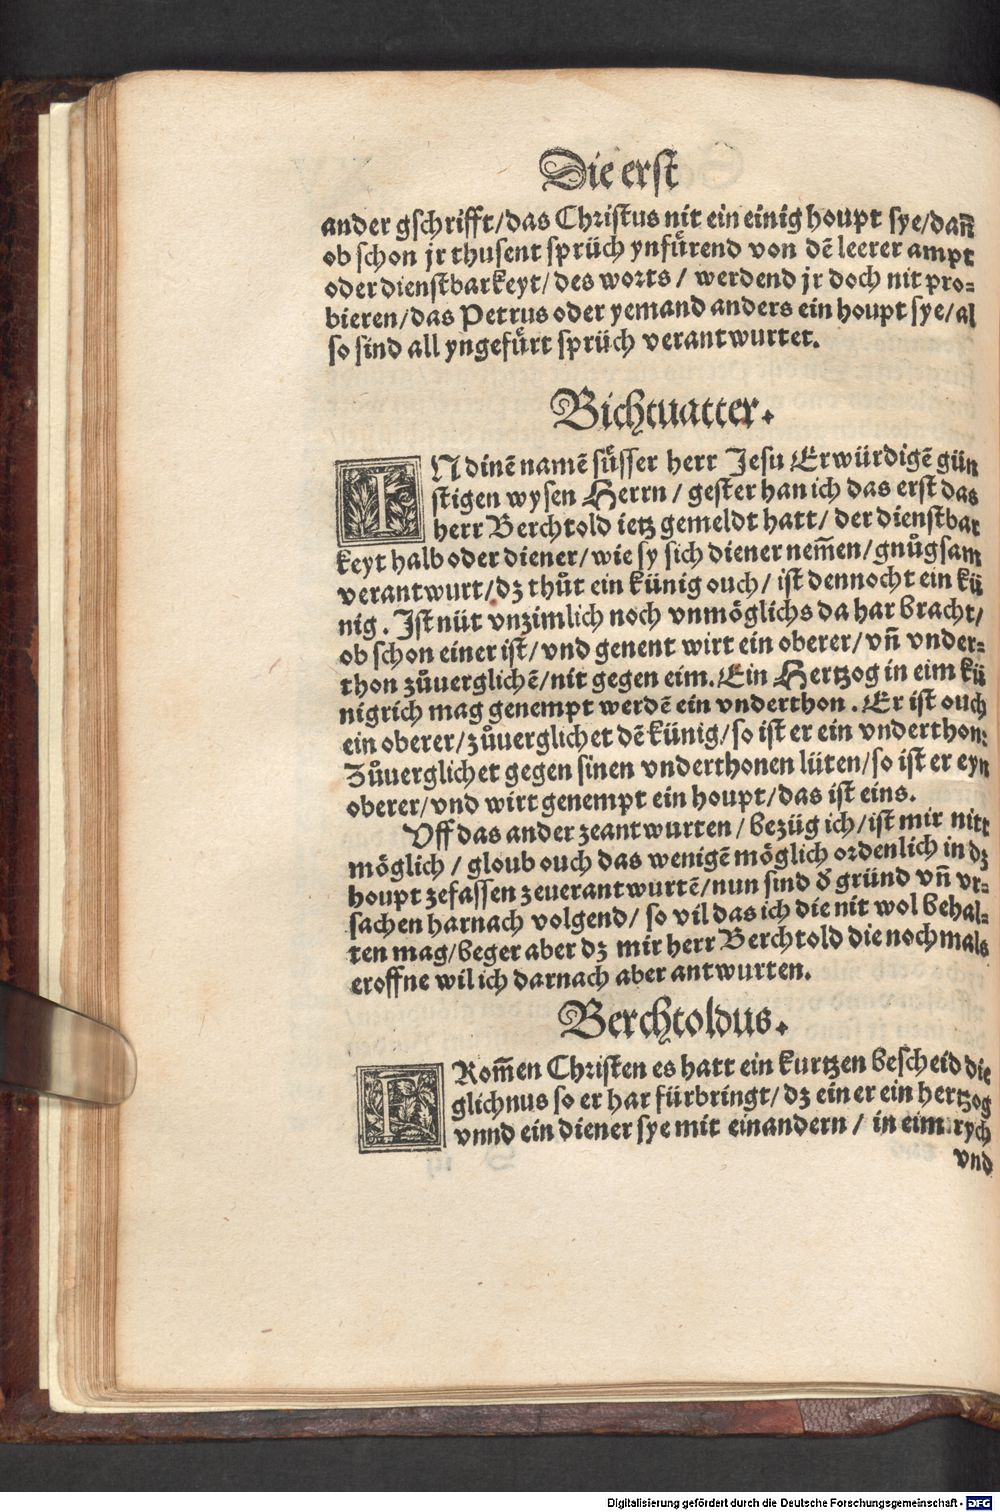 Die erst
ander gschrifft/das Christus nit ein einig houpt sye/dañ
ob schon jr thusent sprüch ynfuͤrend von dē leerer ampt
oder dienstbarkeyt/des worts/ werdend jr doch nit pro⸗
bieren/das Petrus oder yemand anders ein houpt sye/al
so sind all yngefuͤrt sprüch verantwurtet.
Bichtuatter.
IN dinē namē suͤsser herr Jesu Erwürdigē gün
stigen wysen Herrn/ gester han ich das erst das
herr Berchtold ietz gemeldt hatt/ der dienstbar
keyt halb oder diener/wie sy sich diener nem̃en/gnuͦgsam
verantwurt/dz thuͦt ein künig ouch/ ist dennocht ein kü
nig. Ist nüt vnzimlich noch vnmöglichs da har bracht/
ob schon einer ist/vnd genent wirt ein oberer/vñ vnder⸗
thon zuͦuerglichē/nit gegen eim. Ein Hertzog in eim kü
nigrich mag genempt werdē ein vnderthon. Er ist ouch
ein oberer/zuͦuerglichet dē künig/so ist er ein vnderthon:
Zuͦuerglichet gegen sinen vnderthonen lüten/so ist er eyn
oberer/vnd wirt genempt ein houpt/das ist eins.
Vff das ander zeantwurten/bezüg ich/ist mir nitt
möglich/ gloub ouch das wenigē möglich ordenlich in dz
houpt zefassen zeuerantwurtē/nun sind d̕ gründ vñ vr⸗
sachen harnach volgend/ so vil das ich die nit wol behal⸗
ten mag/beger aber dz mir herr Berchtold die nochmals
eroffne wil ich darnach aber antwurten.
Berchtoldus.
FRom̃en Christen es hatt ein kurtzen bescheid die
glichnus so er har fürbringt/dz einer ein hertzog
vnnd ein diener sye mit einandern/ in eim rych
vnd
Digitalisierung gefördert durch die Deutsche Forschungsgemeinschaft - DFG